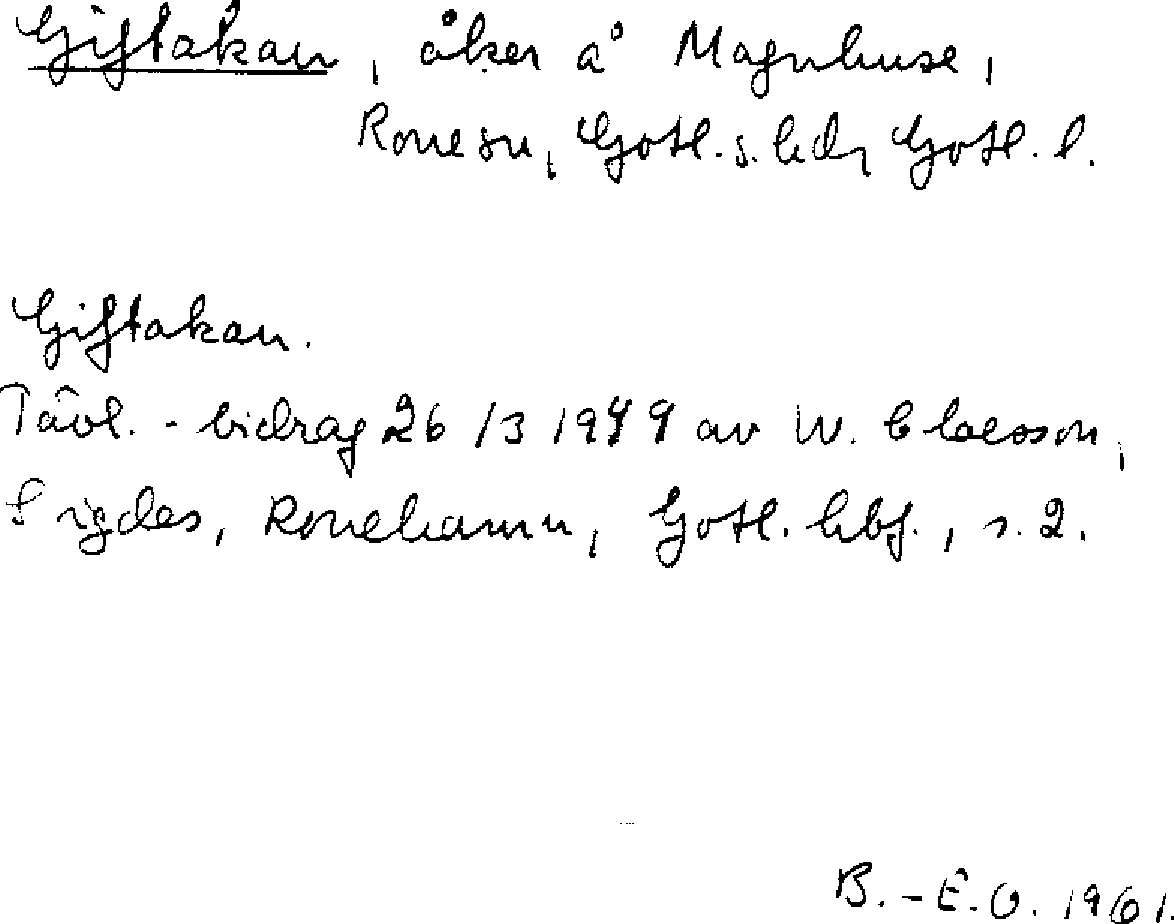 Giftakan, åker å Magnhuse,
Rone sn, Gotl. s. hdr Gotl. l.
Giftakan.
Tävl.-bidrag 26/3 1949 av W. Claesson,
Sigdes, Ronehamn, Gotl. hbf., s. 2.
B.-E.O. 1961.